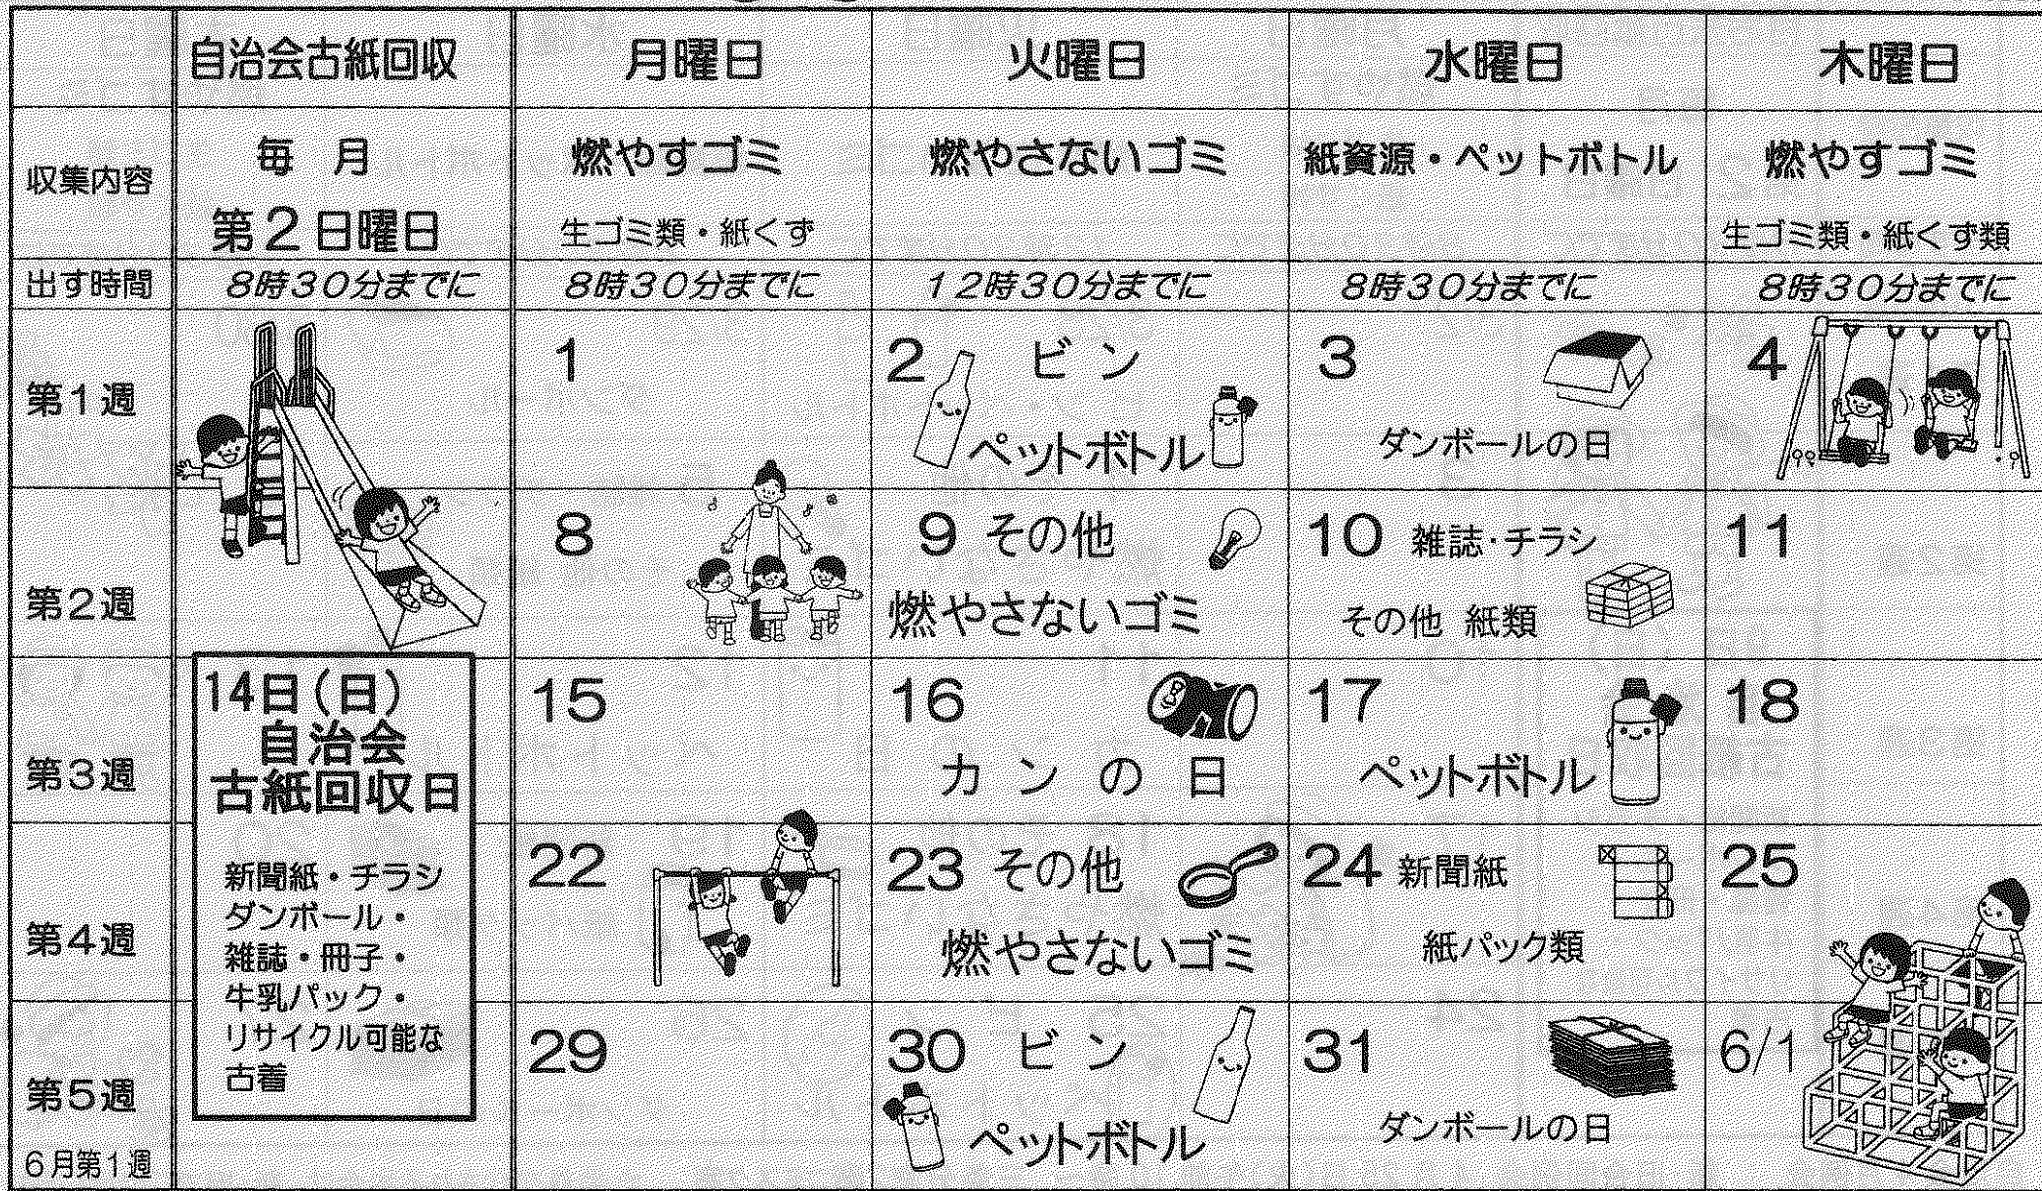 自治会古紙回収 月曜日 火曜日 水曜日 木曜日
収集内容
毎 月
第2日曜日
燃やすゴミ
生ゴミ類・紙くず
燃やさないゴミ
紙資源・ペットボトル
燃やすゴミ
生ゴミ類・紙くず類
出す時間 8時30分までに 8時30分までに 12時30分までに 8時30分までに 8時30分までに
第1週
1
2 ビン
ペットボトル
3
ダンボールの日
4
第2週
8
9 その他
燃やさないゴミ
10 雑誌・チラシ
その他 紙類
11
14日(日)
自治会
古紙回収日
新聞紙・チラシ
ダンボール・
雑誌・冊子・
牛乳パック・
リサイクル可能な
古着
第3週
15
16
カンの日
17
ペットボトル
18
第4週
22
23 その他
燃やさないゴミ
24 新聞紙
紙パック類
25
第5週
6月第1週
29
30 ビン
ペットボトル
31
ダンボールの日
6/1